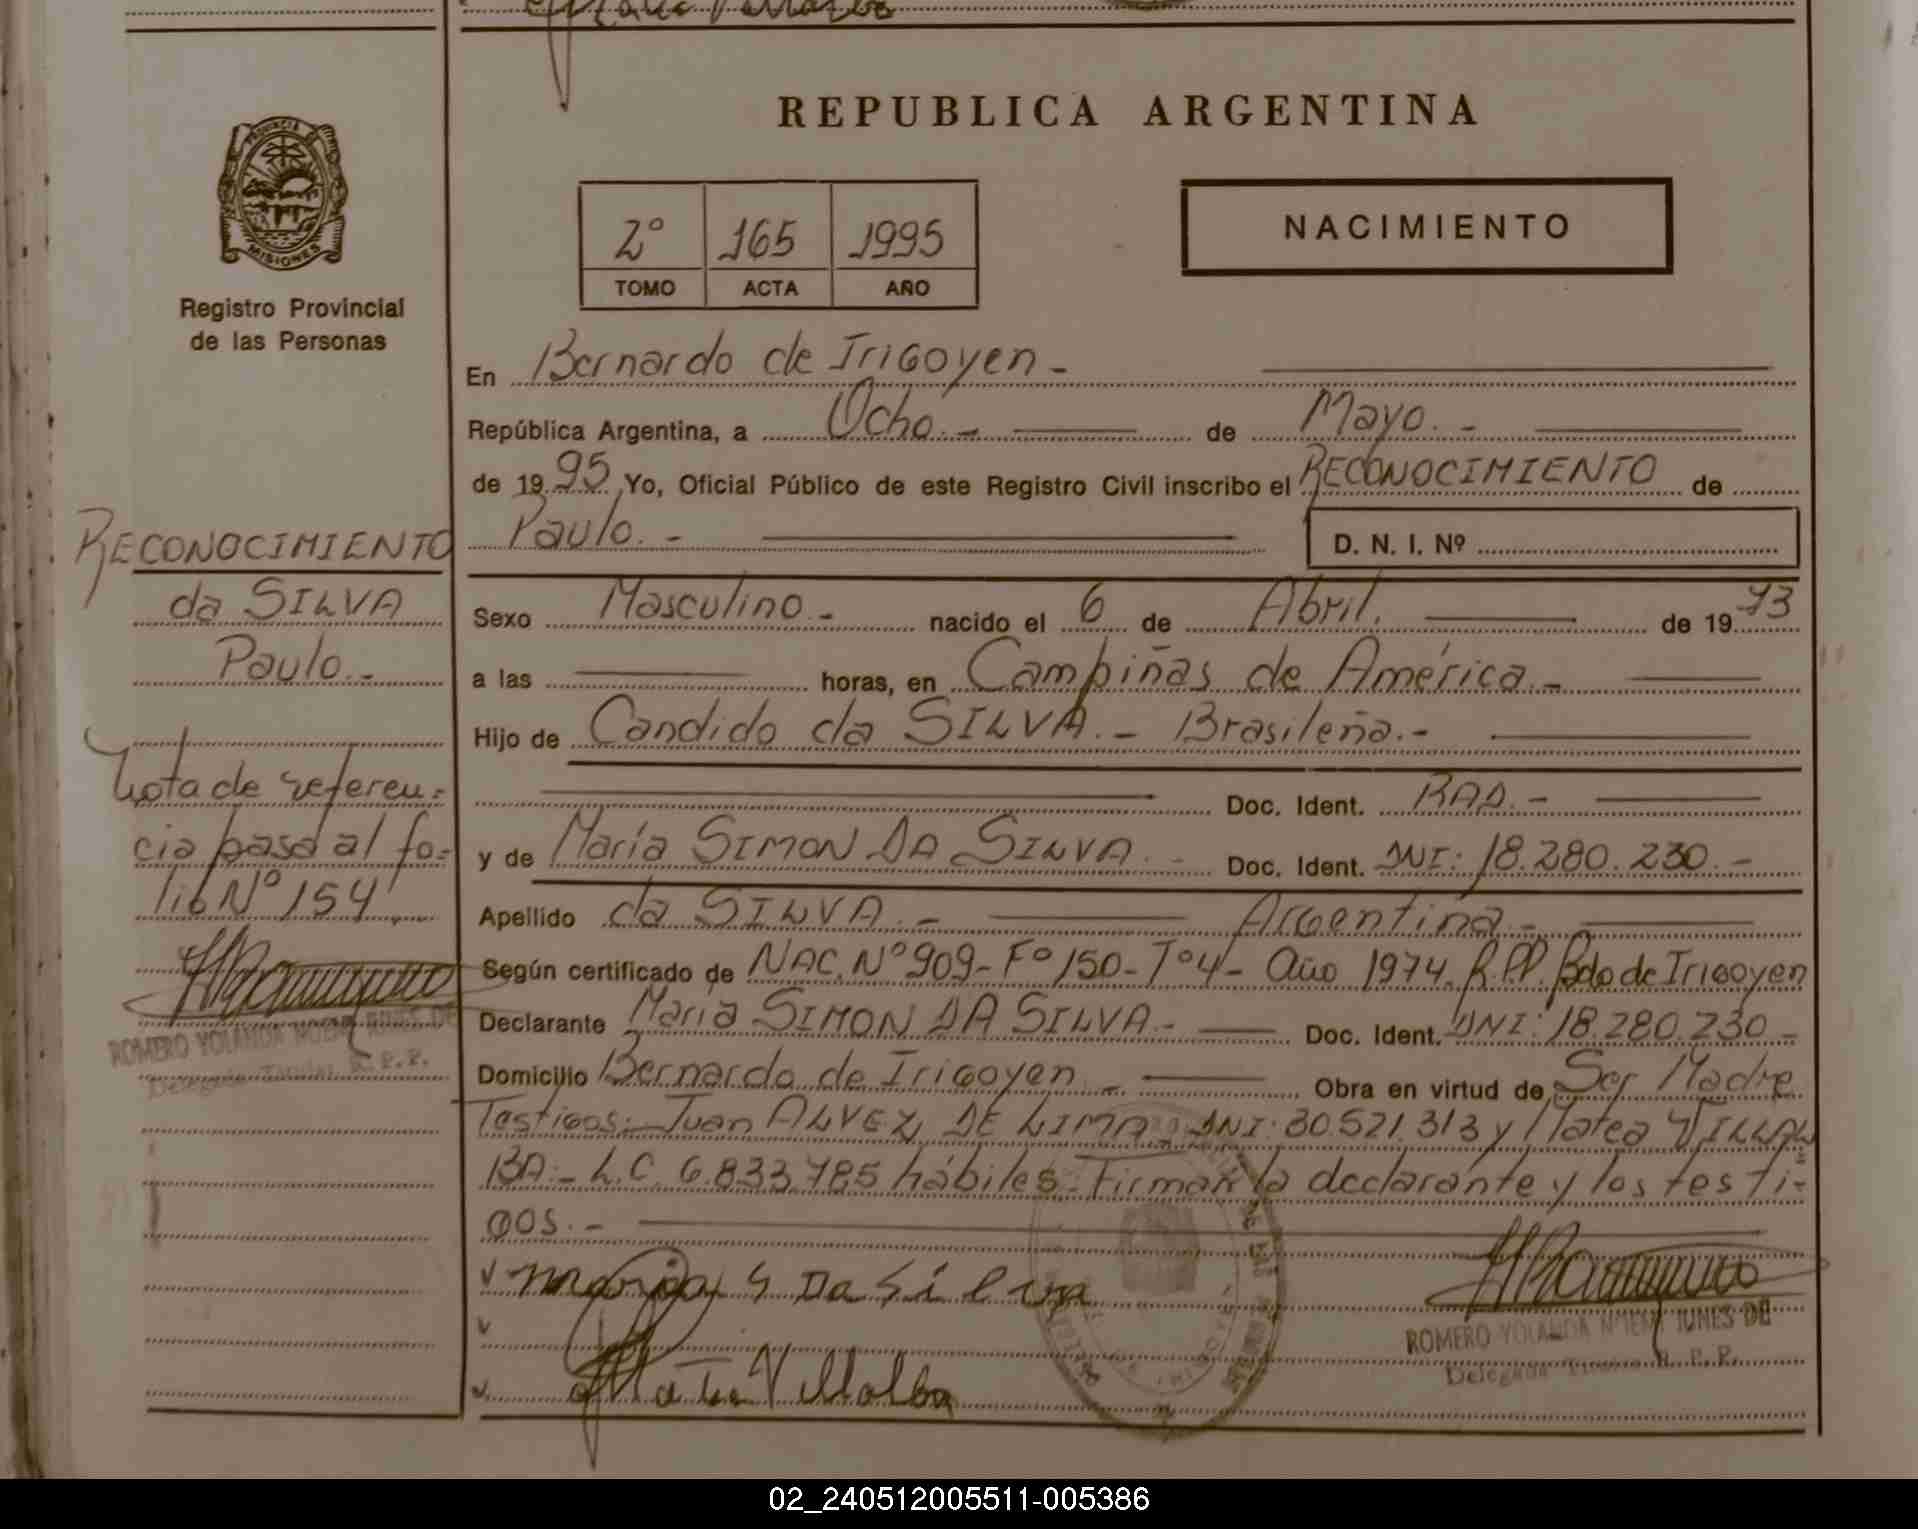 REPUBLICA ARGENTINA
PROVINCIA DE
MISIONES
Registro Provincial
de las Personas
2º 165 1995
TOMO ACTA AÑO
NACIMIENTO
En Bernardo de Irigoyen.-
República Argentina, a Ocho.- de Mayo.-
de 1995 Yo, Oficial Público de este Registro Civil inscribo el RECONOCIMIENTO de
Paulo.- D. N. I. Nº
Sexo Masculino.- nacido el 6 de Abril. de 1973
a las horas, en Campiñas de América.-
Hijo de Candido da SILVA.- Brasileña.-
Doc. Ident. RAD.-
y de María SIMON DA SILVA.- Doc. Ident. DNI: 18.280.230.-
Apellido da SILVA.- Argentina.-
Según certificado de NAC. Nº 909- Fº 150- Tº 4- Año 1974. R.P.P. Bdo de Irigoyen
Declarante María SIMON DA SILVA.- Doc. Ident. DNI: 18.280.230-
Domicilio Bernardo de Irigoyen.- Obra en virtud de Ser Madre
Testigos:- Juan ALVEZ DE LIMA- DNI: 30.521.313 y Matea VILLAL
BA.- L.C. 6.833.785 hábiles.- Firman la declarante y los testi-
gos.-
Maria S Da Silva
Villalba
ROMERO YOLANDA NUNES DE
Delegada Titular R. P. P.
RECONOCIMIENTO
da SILVA
Paulo.-
Nota de referen=
cia pasa al fo=
lio Nº 154
ROMERO YOLANDA NUNES DE
Delegada Titular R. P. P.
02_240512005511-005386